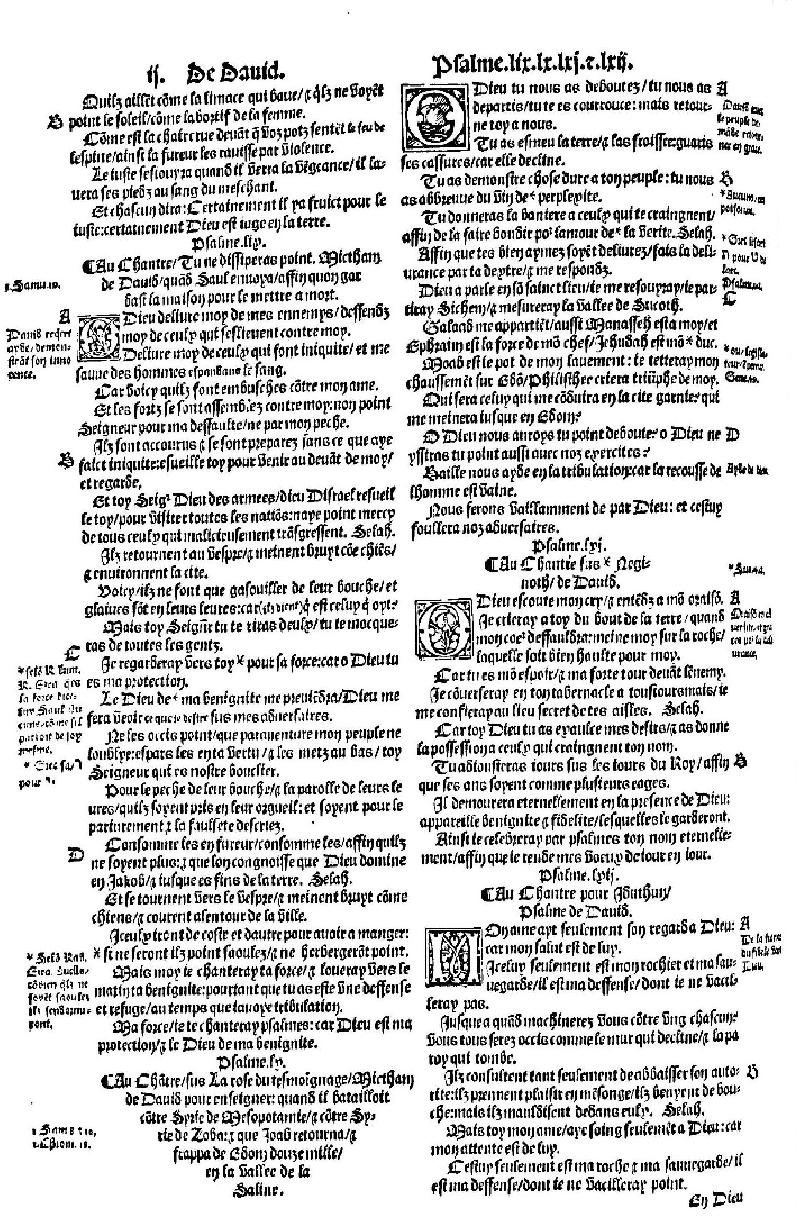 ij. De Dauid.
Quilz aillēt cōme la limace qui baue/ ⁊ q̄lz ne voyēt
B point le soleil/cōme labortif de la femme.
Cōme est la chair crue deuāt q̄ voz potz sentēt le feu de
lespine/ainsi la fureur les rauisse par violence.
Le iuste sesiouyra quand il verra la vēgeance/ il la-
uera ses piedz au sang du meschant.
Et chascun dira: Certainement il ya fruict pour le
iuste:certainement Dieu est iuge en la terre.
Psalme.lix.
¶Au Chantre/Tu ne dissiperas point. Mictham
de Dauid/quād Saul enuoya/affin quon gar
dast la maison pour le mettre a mort.
1.Samu.19.
A
Dieu deliure moy de mes ennemys/deffendz
moy de ceulx qui seslieuent contre moy.
Deliure moy de ceulx qui font iniquite/ et me
saulue des hommes espandans le sang.
Car voicy quilz font embusches cōtre mon ame.
Et les fortz se sont assemblez contre moy:non point
Seigneur pour ma deffaulte/ne par mon peche.
Ilz sont accourus ⁊ se sont preparez sans ce que aye
B faict iniquite:esueille toy pour venir au deuāt de moy/
et regarde.
Et toy Seigr Dieu des armees/dieu Disrael resueil
le toy/pour visiter toutes les natiōs:naye point mercy
de tous ceulx qui malicieusement trāsgressent. Selah.
Ilz retournent au vespre/⁊ meinent bruyt cōe chiēs/
⁊ enuironnent la cite.
Voicy/ilz ne font que gasouiller de leur bouche/et
glaiues sōt en leurs leures:car q̄ est celuy q̄ oyt:
Mais toy Seigñr tu te riras deulx/ tu te mocque-
C ras de toutes les gentz.
Je regarderay vers toy * pour sa force:car o Dieu tu
es ma protection.
Le Dieu de * ma benignite me preuiēdra/Dieu me
fera veoir sus mes aduersaires.
Ne les occis point/que parauenture mon peuple ne
loublye:espars les en ta vertu/⁊ les metz au bas/ toy
Seigneur qui es nostre bouclier.
Pour le peche de leur bouche/⁊ la parolle de leurs le
ures/quilz soyent pris en leur orgueil: et soyent pour le
pariurement/⁊ la faulsete descriez.
D Consomme les en fureur/consomme les/affin quilz
ne soyent plus:⁊ que lon congnoisse que Dieu domine
en Jakob/⁊ iusques es fins de la terre. Selah.
Et se tournent vers le vespre/⁊ meinent bruyt cōme
chiens/⁊ courent alentour de la ville.
Iceulx iront de coste et dautre pour auoir a manger:
* si ne seront ilz point saoulez/⁊ ne herbergerōt point.
Mais moy ie chanteray ta force/⁊ loueray vers le
matin ta benignite:pourtant que tu as este vne deffense
et refuge/au temps que iauoye tribulation.
Ma force/ie te chanteray psalmes: car Dieu est ma
protection/⁊ le Dieu de ma benignite.
Psalme.lx.
¶Au Chātre/sus La rose du tesmoignage/Mictham
de Dauid pour enseigner: quand il batailloit
cōtre Syrie de Mesopotamie/⁊ cōtre Sy-
rie de Zoba:⁊ que Joab retourna/⁊
frappa de Edom douze mille/
en la vallee de la
Saline.
Psalme.lix.lx.lxj.⁊.lxij.
Dieu tu nous as deboutez/tu nous as A
departis/tu te es courrouce: mais retour-
ne toy a nous.
Tu as esmeu la terre/⁊ las froissee:guaris
ses cassures/car elle decline.
Tu as demonstre chose dure a ton peuple: tu nous B
as abbreuue du vin de * perplexite.
Tu donneras la baniere a ceulx qui te craingnent/
affin de la faire bondir po' lamour de * la verite. Selah.
Affin que tes bien aymez soyēt deliurez/fais la deli-
urance par ta dextre/⁊ me respondz.
Dieu a parle en sō sainct lieu/ie me resouyray/ie par- C
tiray Sichem/⁊ mesureray la vallee de Sucoth.
Galaad me appartiēt/aussi Manasseh est a moy/et
Ephraim est la force de mō chef/Jehudah est mō * duc.
Moab est le pot de mon lauement: ie ietteray mon
chaussemēt sur Edō/Philisthee criera triūphe de moy.
Qui sera celuy qui me cōduira en la cite garnie: qui
me meinera iusque en Edom:
O Dieu nous auroys tu point deboute: o Dieu ne D
ystras tu point aussi auec noz exercites:
Baille nous ayde en la tribulation:car la recousse de
lhomme est vaine.
Nous ferons vaillamment de par Dieu: et cestuy
foullera noz aduersaires.
Psalme.lxj.
¶Au Chantre sus * Negi-
noth/ de Dauid.
Dieu escoute mon cry/⁊ entēdz a mō oraisō. A
Je crieray a toy du bout de la terre / quand
mon coe' deffauldra:meine moy sur la roche/
laquelle soit bien haulte pour moy.
Car tu es mō espoir/⁊ ma forte tour deuāt lēnemy.
Je cōuerseray en ton tabernacle a tousiours mais/ie
me confieray au lieu secret de tes aisles. Selah.
Car toy Dieu tu as exaulce mes desirs/⁊ as donne
la possession a ceulx qui craingnent ton nom.
Tu adiousteras iours sus les iours du Roy/affin B
que ses ans soyent comme plusieurs eages.
Il demourera eternellement en la presence de Dieu:
appareille benignite ⁊ fidelite/lesquelles le garderont.
Ainsi ie celebreray par psalmes ton nom eternelle-
ment/affin que ie rende mes voeux de iour en iour.
Psalme.lxij.
¶Au Chantre pour Iduthun/
Psalme de Dauid.
Mon ame ayt seulement son regard a Dieu: A
car mon salut est de luy.
Iceluy seulement est mon rochier et ma sau-
uegarde/il est ma deffense/ dont ie ne vacil-
leray pas.
Jusque a quād machinerez vous cōtre vng chascun:
vous tous serez occis comme le mur qui decline/⁊ la pa
roy qui tombe.
Ilz consultent tant seulement de abbaisser son auto- B
rite:ilz prennent plaisir en mēsonge/ilz benyent de bou-
che:mais ilz mauldisent dedans eulx. Selah.
Mais toy mon ame/aye soing seulemēt a Dieu: car
mon attente est de luy.
Cestuy seulement est ma roche ⁊ ma sauuegarde/il
est ma deffense/dont ie ne vacilleray point.
En Dieu